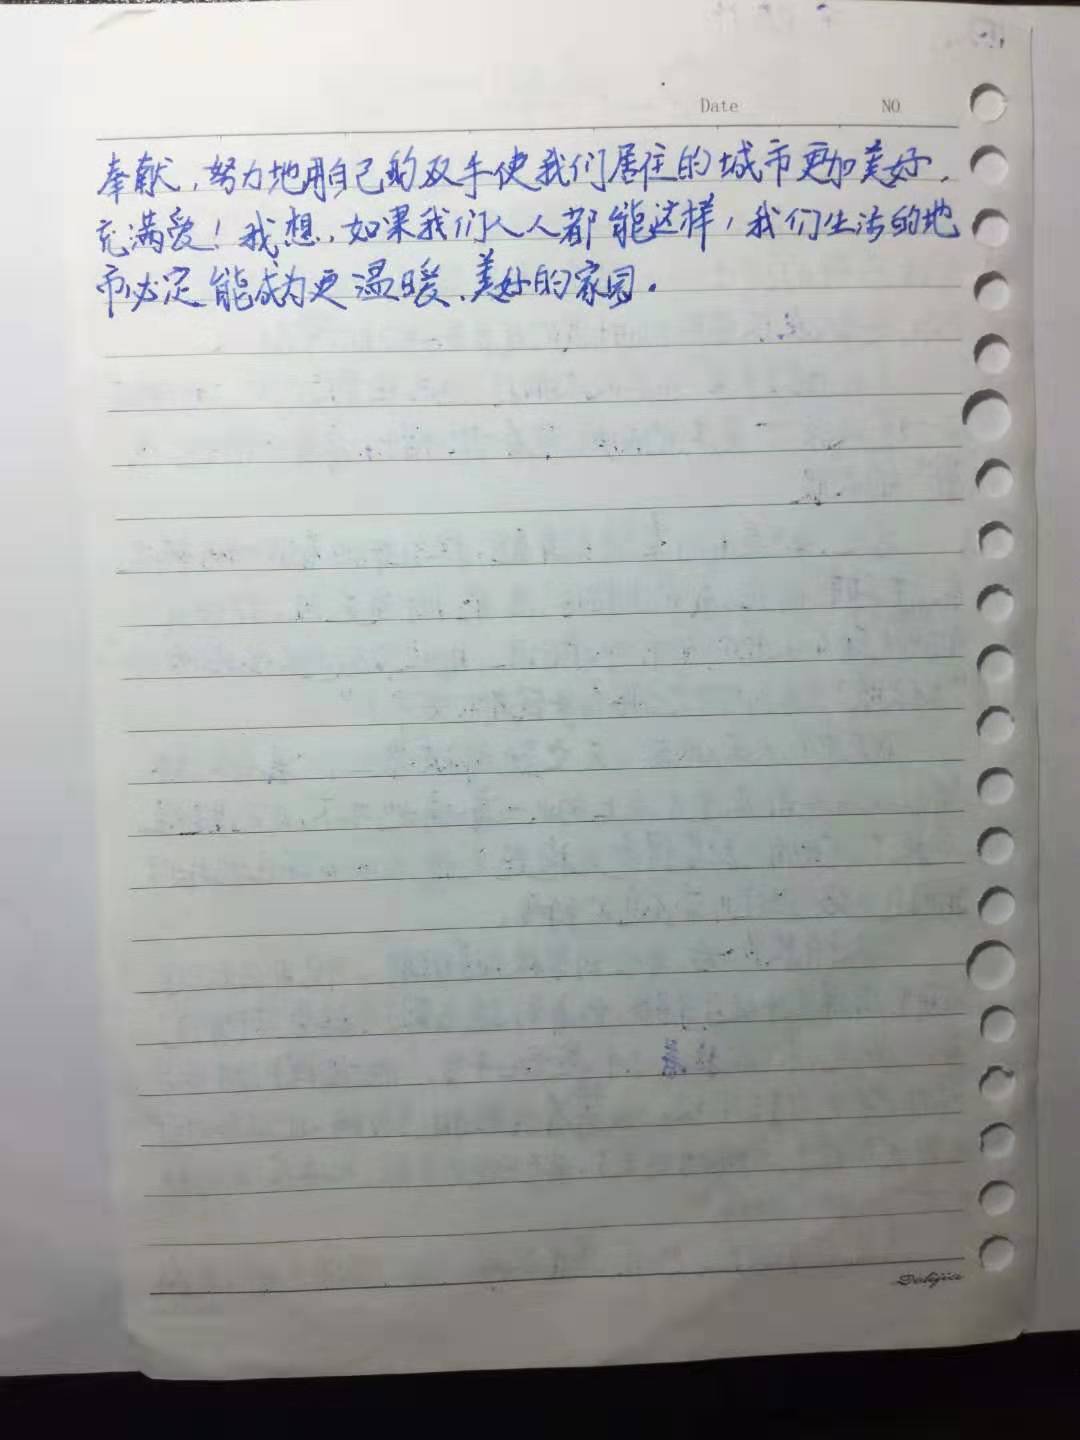 Date NO
奉献，努力地用自己的双手使我们居住的城市更加美好，
充满爱！我想，如果我们人人都能这样，我们生活的地
市必定能成为更温暖、美好的家园。
Delijia